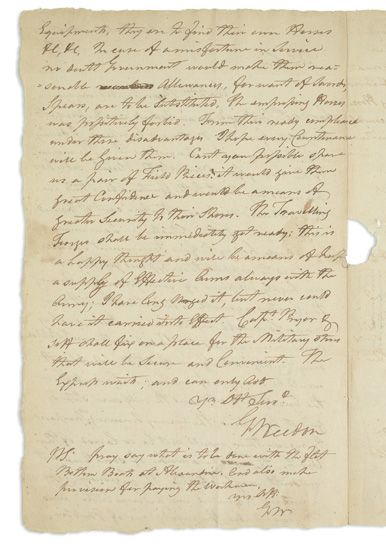 Equipments, they are to find their own Horses
&c &c. In case of a misfortune in Service
no doubt Government would make them rea-
-sonable Allowances, for want of Swords,
Spears, are to be Substituted. The impressing Horses
was positively forbid. From their ready compliance
under these disadvantages I hope every Countenance
will be given them. Cant you possible spare
us a pair of Field Pieces; it would give them
great Confidence and would be a means of
greater Security to their Shores. The Travelling
Forges shall be immediately got ready; this is
a happy thought and will be a means of
a supply of Effective Arms always with the
Army: I have long urged it, but never could
have it carried into Effect. Capt. Pryor &
self shall fix on a place for the Military Stores
that will be Secure and Convenient. The
Express waits; and can only add
Yr. Obt. Servt.
G Weedon
NB. pray say what is to be done with the flat
Bottom Boats at Alexandria. And also make
provision for paying the Workmen.
GW